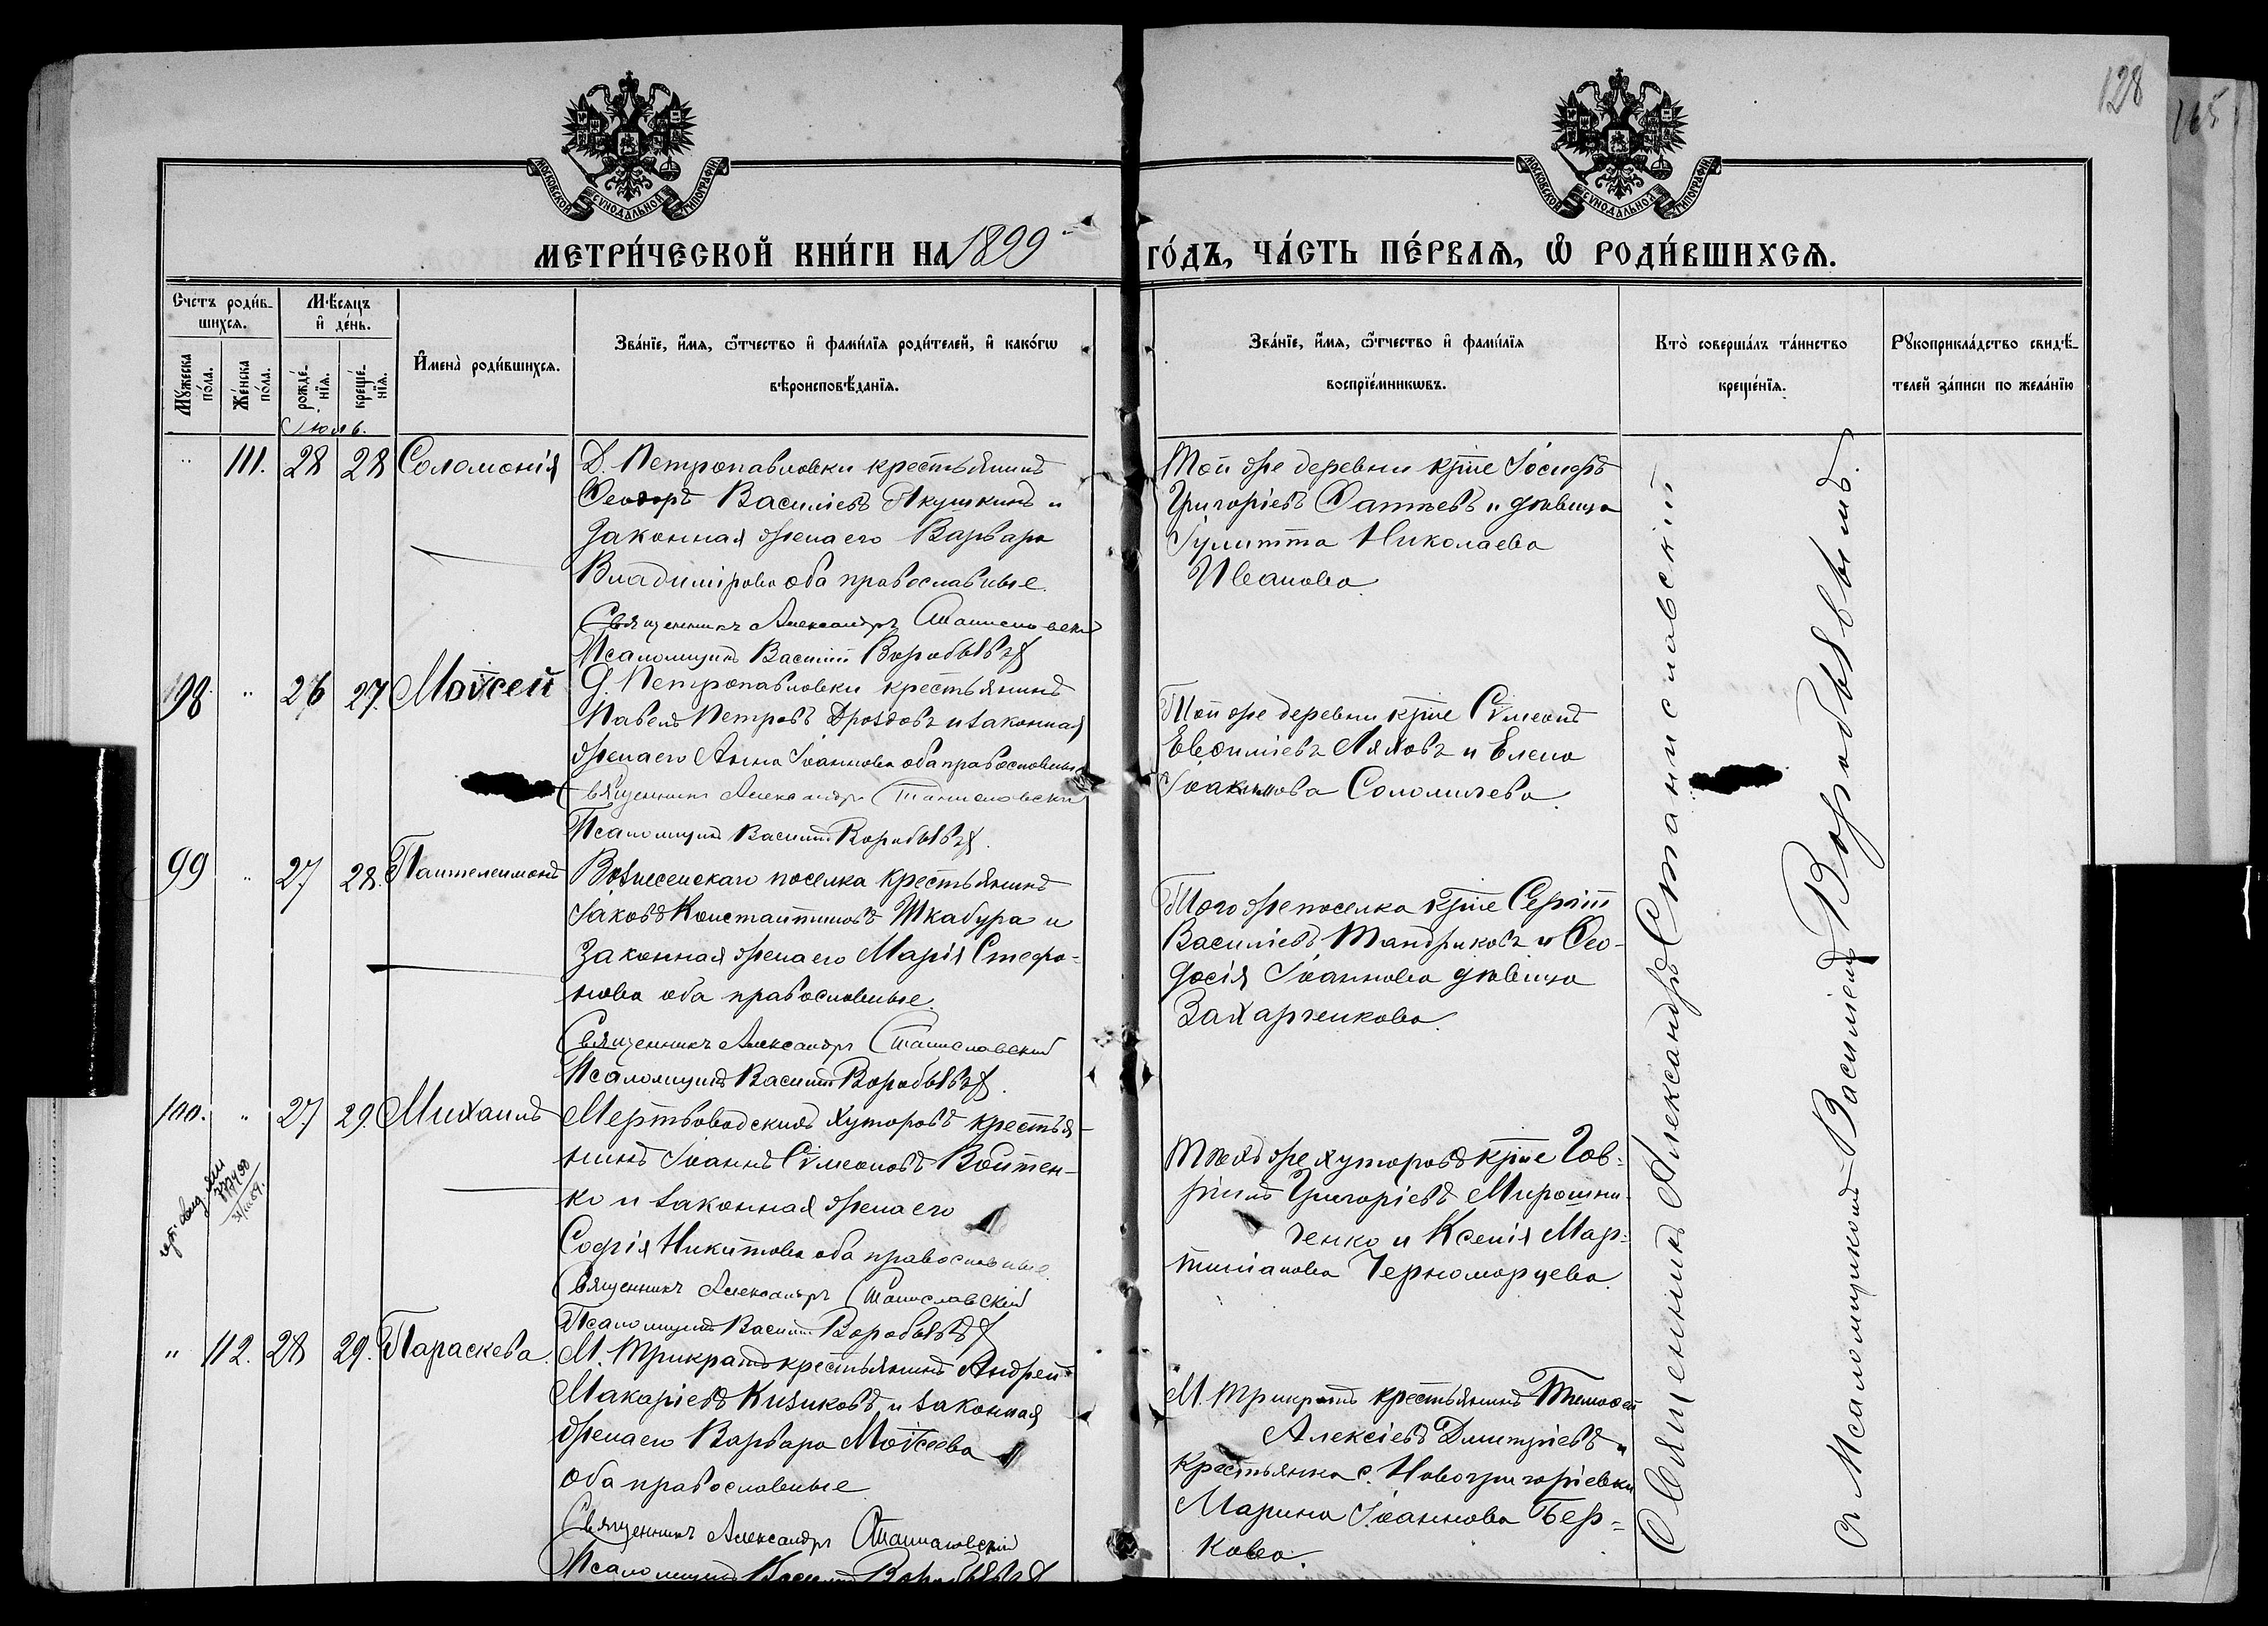 128
165
МОСКОВСКОЙ СѴНОДАЛЬНОЙ ТИПОГРАФІИ
МОСКОВСКОЙ СѴНОДАЛЬНОЙ ТИПОГРАФІИ
МЕТРИ́ЧЕСКОЙ КНИ́ГИ НА 1899 ГО́ДЪ, ЧА́СТЬ ПЕ́РВАѦ, Ѡ҆ РОДИ́ВШИХСѦ.
Сче́тъ роди́в-
шихсѧ.
Мꙋ́жеска по́ла.
Же́нска по́ла.
Мѣ́сѧцъ
и҆ де́нь.
рожде́-
нїѧ.
креще́-
нїѧ.
И҆мена̀ роди́вшихсѧ.
Зва́нїе, и҆́мѧ, ѻ҆́тчество и҆ фами́лїѧ роди́телей, и҆ како́гѡ
вѣроисповѣ́данїѧ.
Зва́нїе, и҆́мѧ, ѻ҆́тчество и҆ фами́лїѧ
воспрїе́мникѡвъ.
Кто̀ соверша́лъ та́инство
креще́нїѧ.
Рꙋкоприкла́дство свидѣ́-
телей за́писи по жела́нїю
Іюль.
" 111. 28 28 Соломонія
Д. Петропавловки крестьянинъ
Ѳеодоръ Василіевъ Якушкинъ и
законная жена его Варвара
Владимірова оба православные.
Священникъ Александръ Станиславскій
Псаломщикъ Василій Воробьевъ
Той же деревни кр-не Іосифъ
Григоріевъ Фатѣевъ и дѣвица
Іулитта Николаева
Иванова.
98. " 26 27. Моѵсей
Д. Петропавловки крестьянинъ
Павелъ Петровъ Дроздовъ и законная
жена его Анна Іоаннова оба православные
Священникъ Александръ Станиславскій
Псаломщикъ Василій Воробьевъ.
Той же деревни кр-не Сѵмеонъ
Евѳиміевъ Ляховъ и Елена
Іоакимова Соломичева.
99 " 27 28. Пантелеимонъ
Вознесенскаго поселка крестьянинъ
Іаковъ Константиновъ Шкабура и
законная жена его Марія Стефа-
нова оба православные.
Священникъ Александръ Станиславскій
Псаломщикъ Василій Воробьевъ.
Того же поселка кр-не Сергій
Василіевъ Тандриковъ и Ѳео-
досія Іоаннова дѣвица
Захарченкова.
100. " 27. 29. Михаилъ
Мертвоводскихъ хуторовъ крестья-
нинъ Іоаннъ Сѵмеоновъ Войтен-
ко и законная жена его
Софія Никитова оба православные.
Священникъ Александръ Станиславскій
Псаломщикъ Василій Воробьевъ
Тѣхъ же хуторовъ кр-не Гав-
ріилъ Григоріевъ Мирошни-
ченко и Ксенія Мар-
тиніанова Черноморцева.
" 112. 28 29. Параскева.
М. Трикратъ крестьянинъ Андрей
Макаріевъ Кизиковъ и законная
жена его Варвара Моѵсеева
оба православные
Священникъ Александръ Станиславскій
Псаломщикъ Василій Воробьевъ
М. Трикратъ крестьянинъ Тимоѳей
Алексіевъ Дмитріевъ и
крестьянка с. Новогригоріевки
Марина Іоаннова Бер-
кова.
Священникъ Александръ Станиславскій
съ Псаломщикомъ Василіемъ Воробьевымъ.